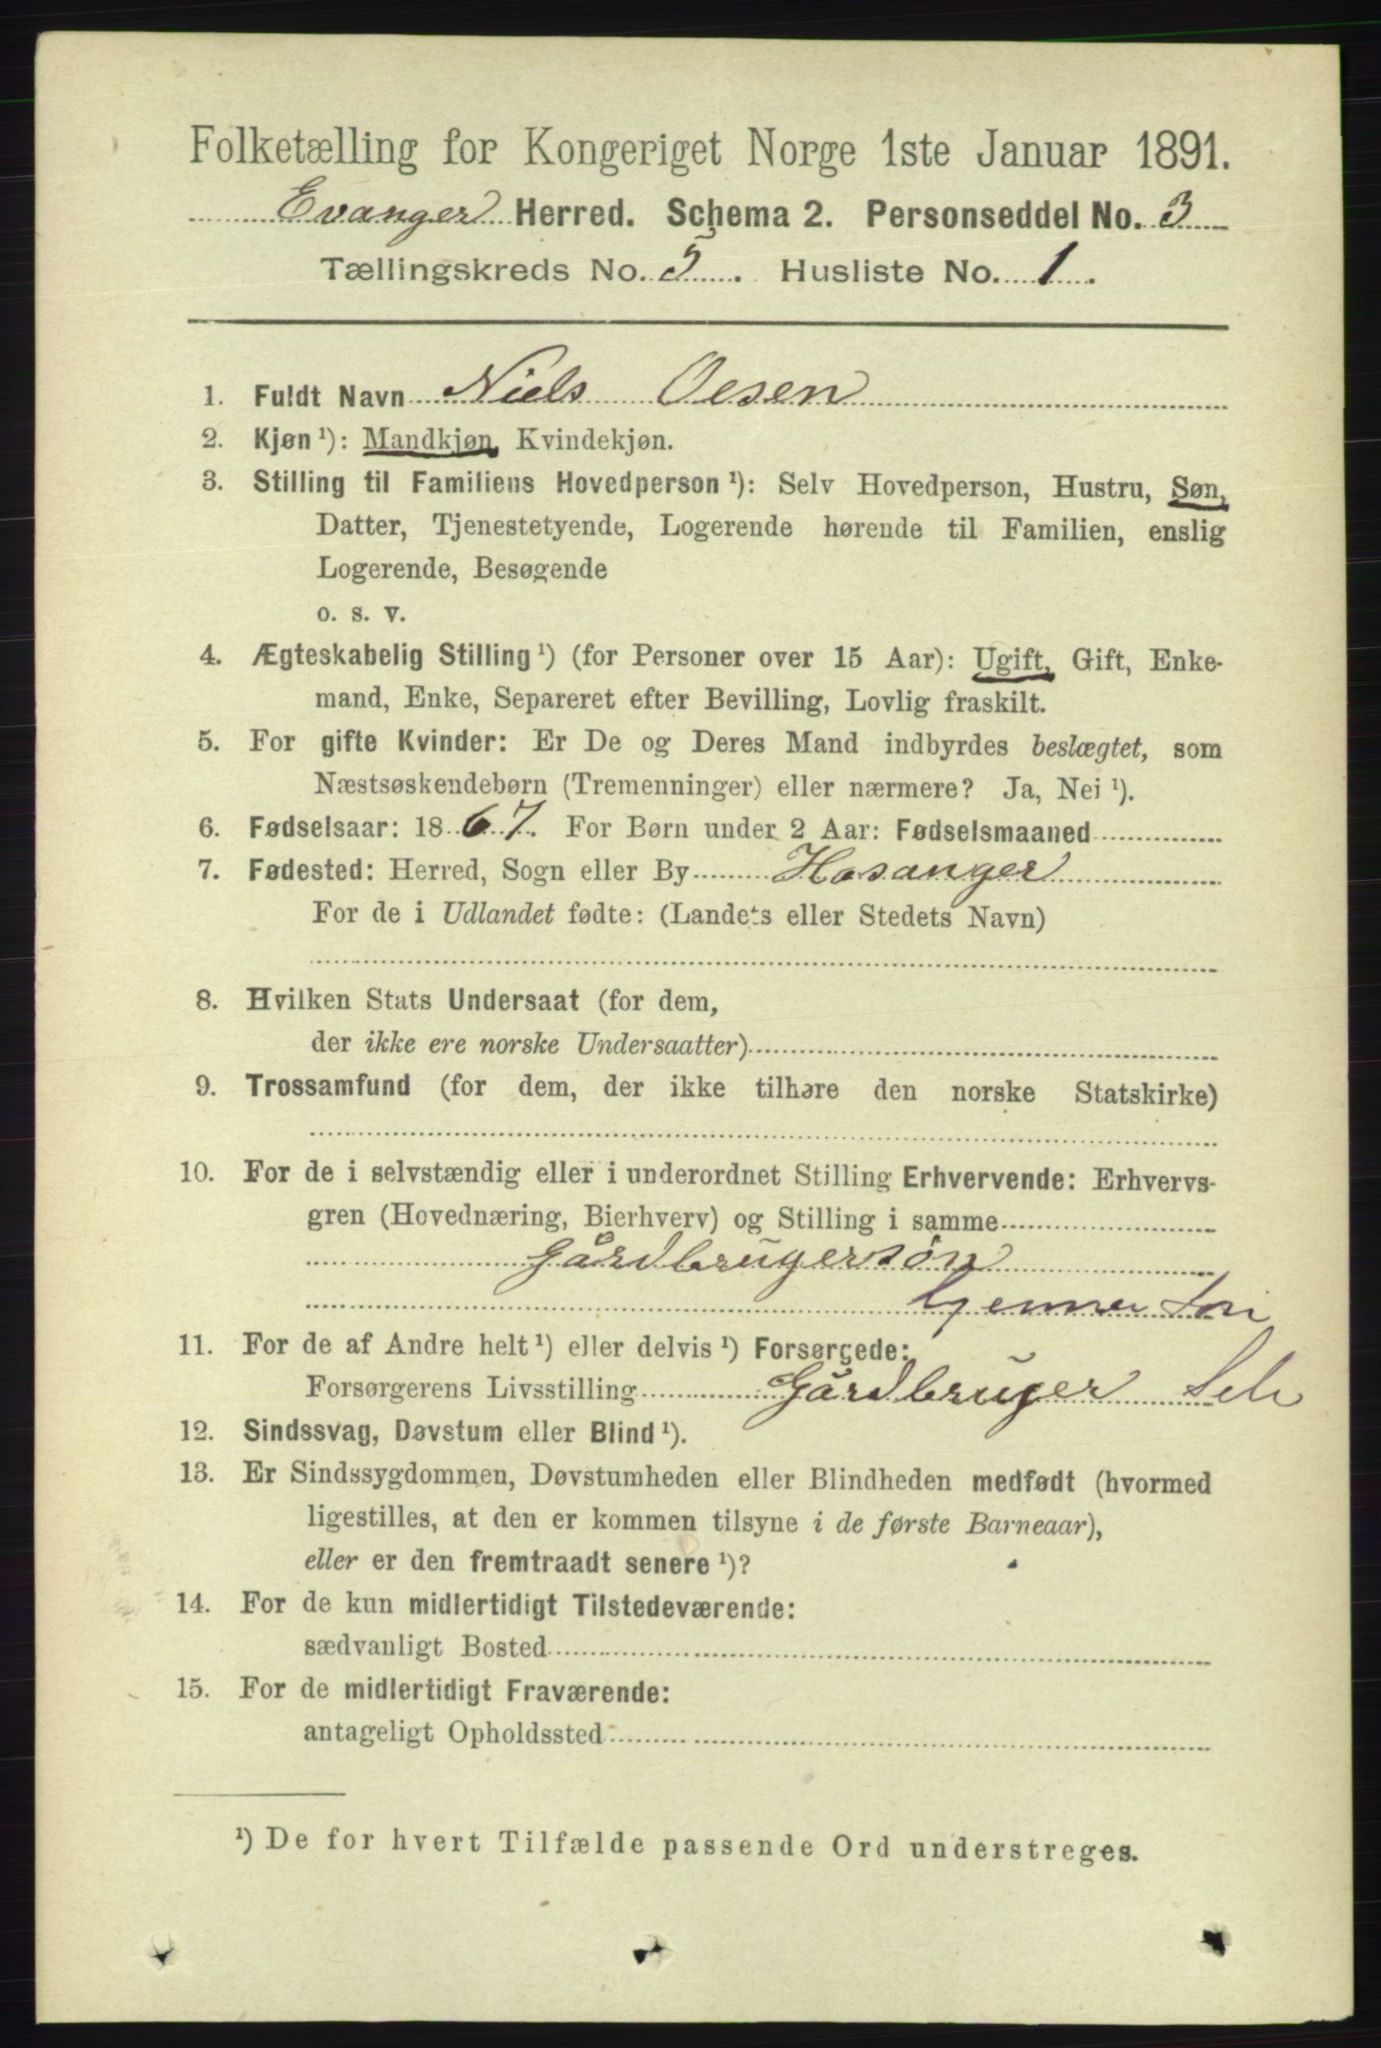 Folketælling for Kongeriget Norge 1ste Januar 1891.
Evanger Herred. Schema 2. Personseddel No. 3
Tællingskreds No. 5. Husliste No. 1.
1. Fuldt Navn Niels Oesen
2. Kjøn ¹): Mandkjøn, Kvindekjøn.
3. Stilling til Familiens Hovedperson ¹): Selv Hovedperson, Hustru, Søn,
Datter, Tjenestetyende, Logerende hørende til Familien, enslig
Logerende, Besøgende
o. s. v.
4. Ægteskabelig Stilling ¹) (for Personer over 15 Aar): Ugift, Gift, Enke-
mand, Enke, Separeret efter Bevilling, Lovlig fraskilt.
5. For gifte Kvinder: Er De og Deres Mand indbyrdes beslægtet, som
Næstsøskendebørn (Tremenninger) eller nærmere? Ja, Nei ¹).
6. Fødselsaar: 1867. For Børn under 2 Aar: Fødselsmaaned
7. Fødested: Herred, Sogn eller By Hosanger
For de i Udlandet fødte: (Landets eller Stedets Navn)
8. Hvilken Stats Undersaat (for dem,
der ikke ere norske Undersaatter)
9. Trossamfund (for dem, der ikke tilhøre den norske Statskirke)
10. For de i selvstændig eller i underordnet Stilling Erhvervende: Erhvervs-
gren (Hovednæring, Bierhverv) og Stilling i samme
Gårdbrugersøn
11. For de af Andre helt ¹) eller delvis ¹) Forsørgede:
Forsørgerens Livsstilling Gårdbruger
12. Sindssvag, Døvstum eller Blind ¹).
13. Er Sindssygdommen, Døvstumheden eller Blindheden medfødt (hvormed
ligestilles, at den er kommen tilsyne i de første Barneaar),
eller er den fremtraadt senere ¹)?
14. For de kun midlertidigt Tilstedeværende:
sædvanligt Bosted
15. For de midlertidigt Fraværende:
antageligt Opholdssted
¹) De for hvert Tilfælde passende Ord understreges.